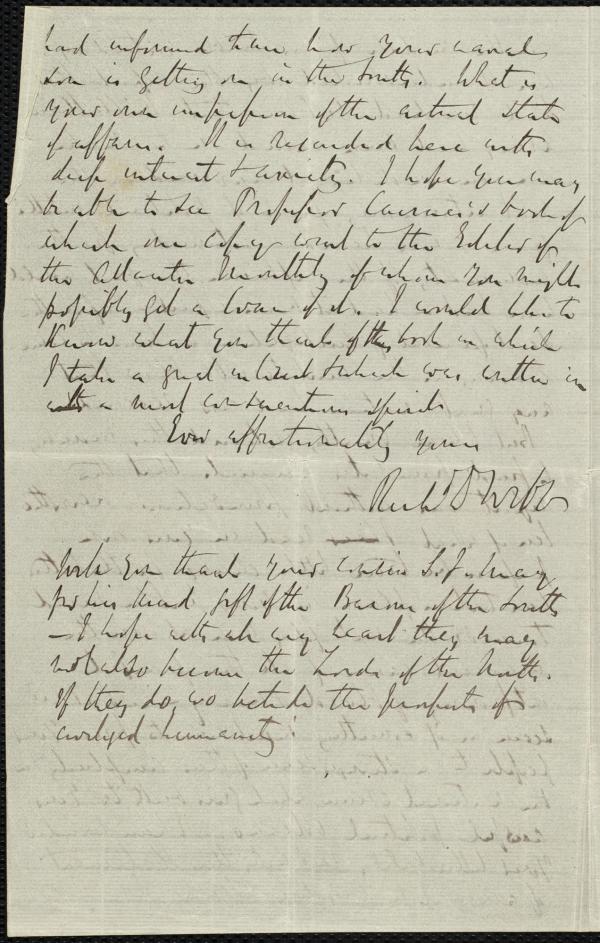 had informed them how your naval
son is getting on in the South. What is
your own impression of the actual state
of affairs. It is regarded here with
deep interest & anxiety. I hope you may
be able to see Professor Cairnes's book of
which one copy went to the Editor of
the Atlantic Monthly of whom you might
possibly get a loan of it. I would like to
know what you think of this book in which
I take a great interest & which was written in
a most conscientious spirit.
Ever affectionately yours
Richd D Webb
Will you thank your cousin S. J. May
for his kind gift of the Barons of the South
— I hope with all my heart they may
not also become the Lords of the North.
If they do, wo betide the prospects of
civilized humanity!